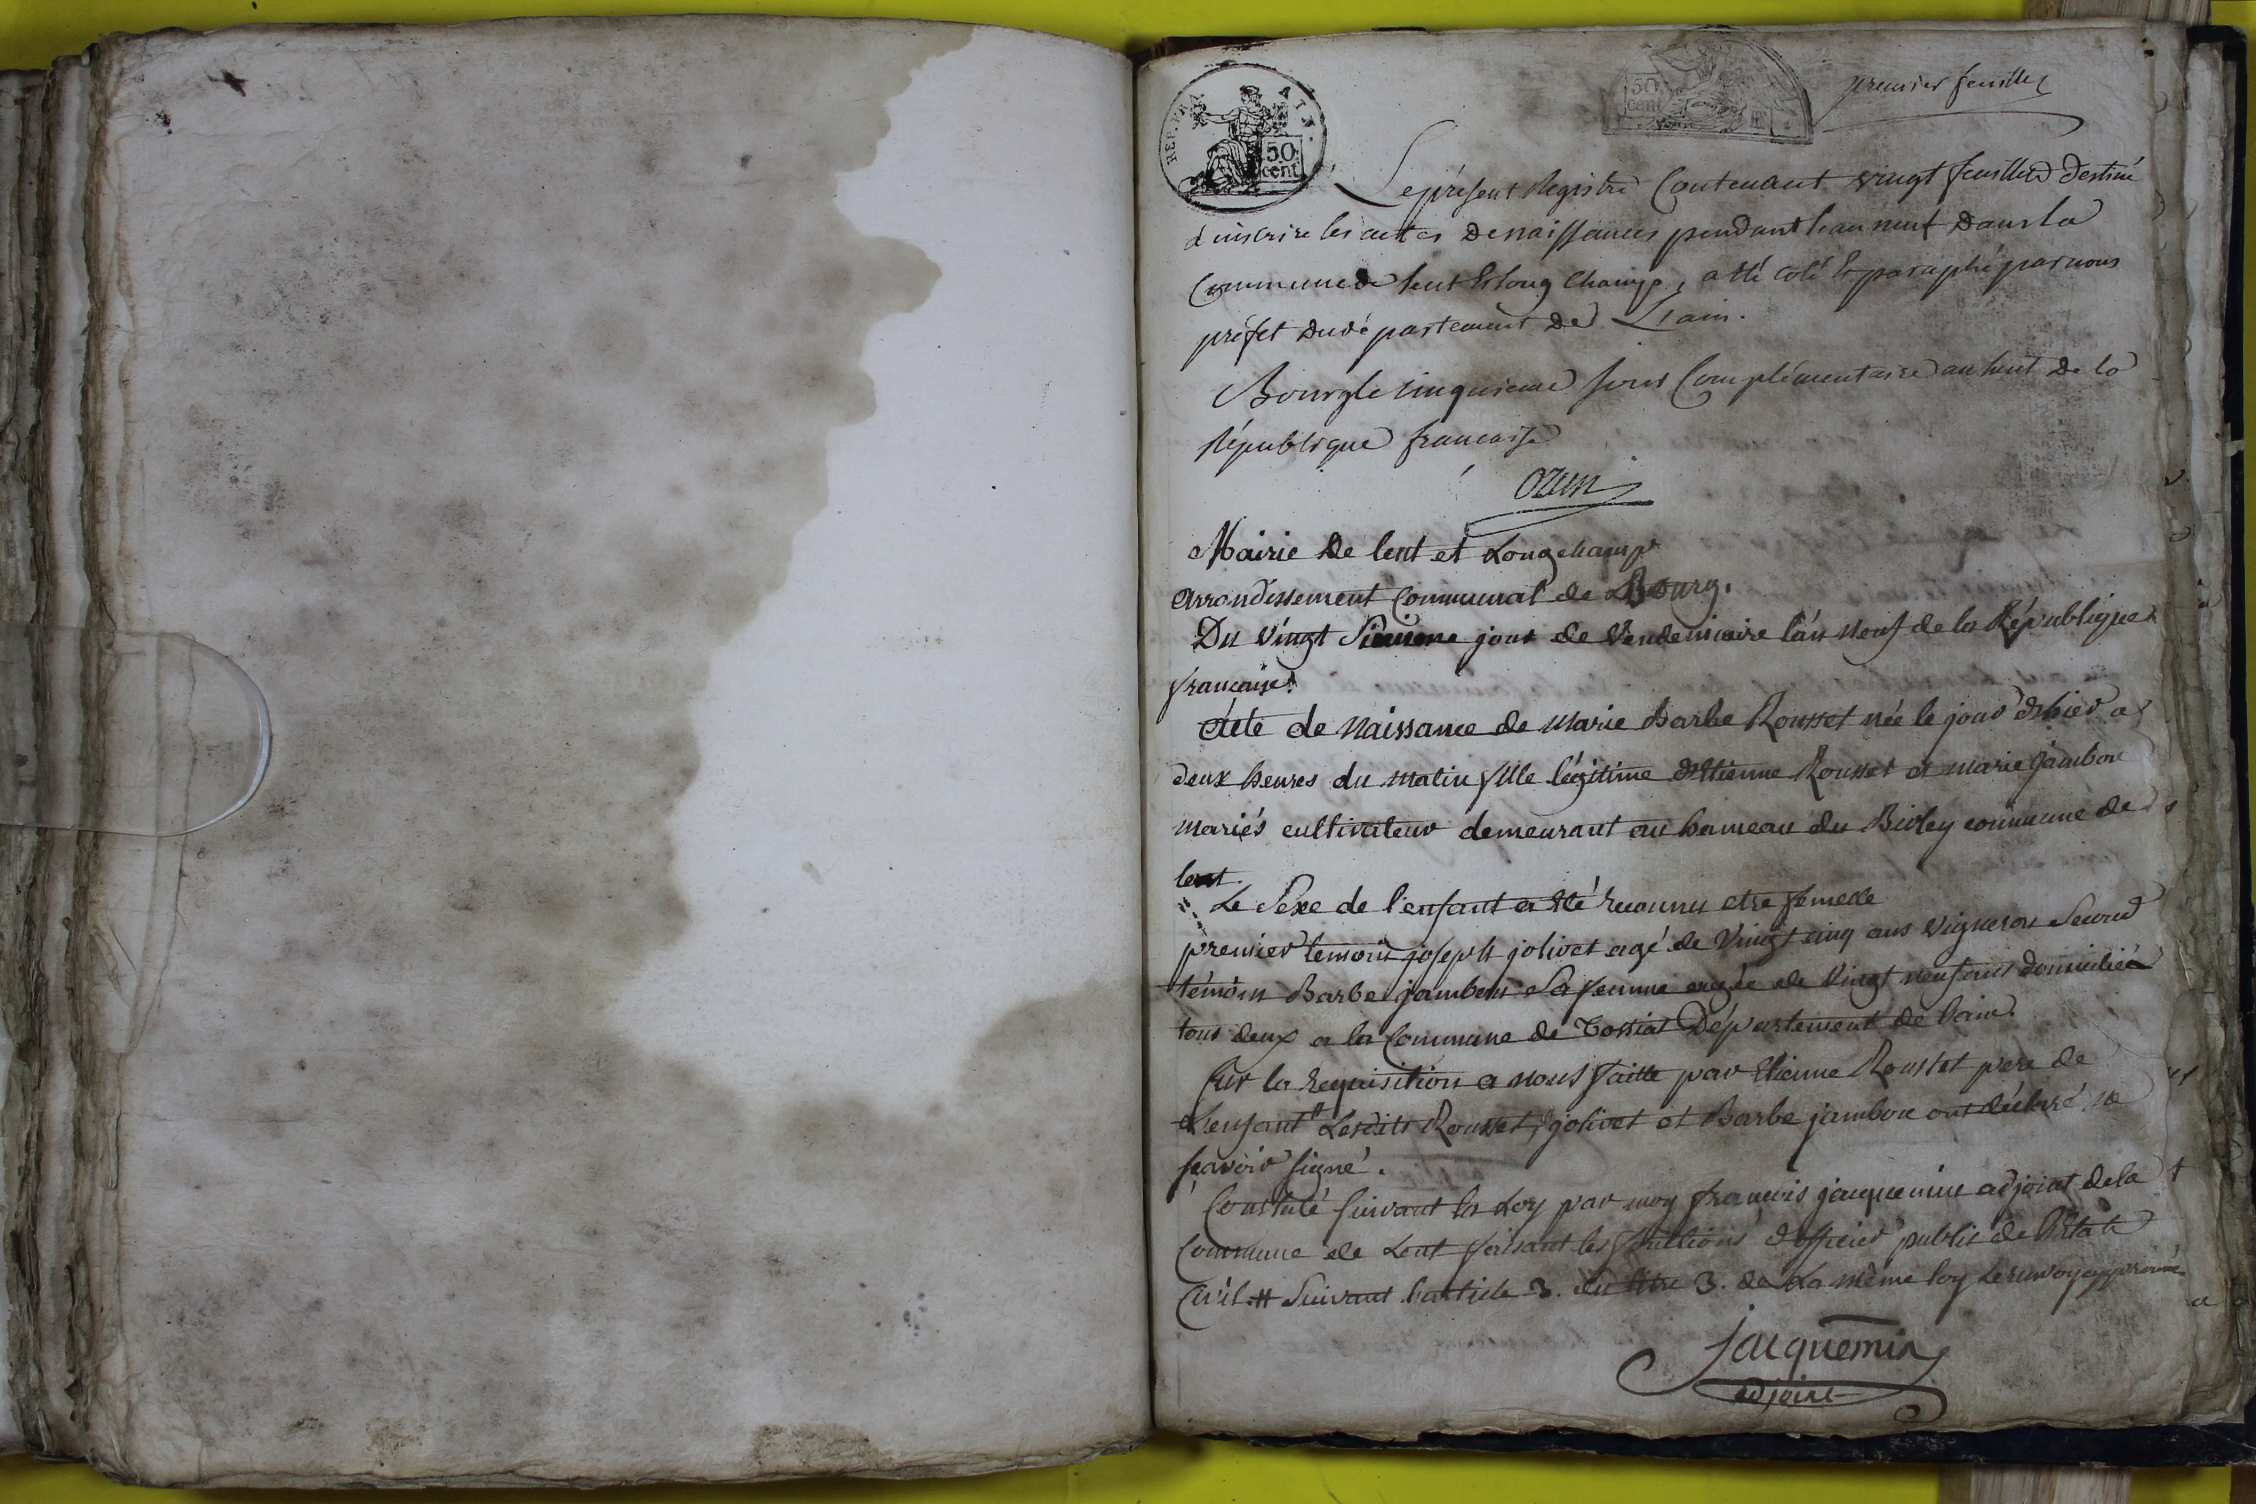 premier feuillet
REP. FRA
50
cent
50
cent
Le présent Registre Contenant vingt feuillets destiné
a inscrire les actes de naissances pendant l'an neuf dans la
Commune de lent & long Champ, a été coté & paraphé par nous
préfet du département de L'ain.
Bourg le cinquieme jour Complémentaire an huit de la
République francaise
Ozun
Mairie de lent et Longchamp
arrondissement Communal de Bourg.
Du Vingt Sixieme jour de Vendemiaire l'an Neuf de la République
francaise.
Acte de Naissance de Marie Barbe Rousset née le jour d'hier a
deux heures du matin fille légitime d'Etienne Rousset et marie jambon
mariés cultivateur demeurant au hameau du Bioley commune de
lent.
Le Sexe de l'enfant a été reconnu etre femelle
premier temoin joseph jolivet agé de Vingt cinq ans vigneron Second
témoin Barbe jambon Sa femme agée de vingt neuf ans domiciliés
tous deux a la Commune de Tossiat Département de lain.
Sur la requisition a nous faitte par Etienne Rousset pere de
L'enfant # Lesdits Rousset, jolivet et Barbe jambon ont déclaré ne
savoir signé.
Constaté suivant la Loy par moy francois jacquemin adjoint de la
Commune de Lent faisant les fonctions d'officier public de l'Etat
Civil # Suivant l'article 3. du titre 3. de La même loy Le renvoy approuvé
jacquemin
adjoint